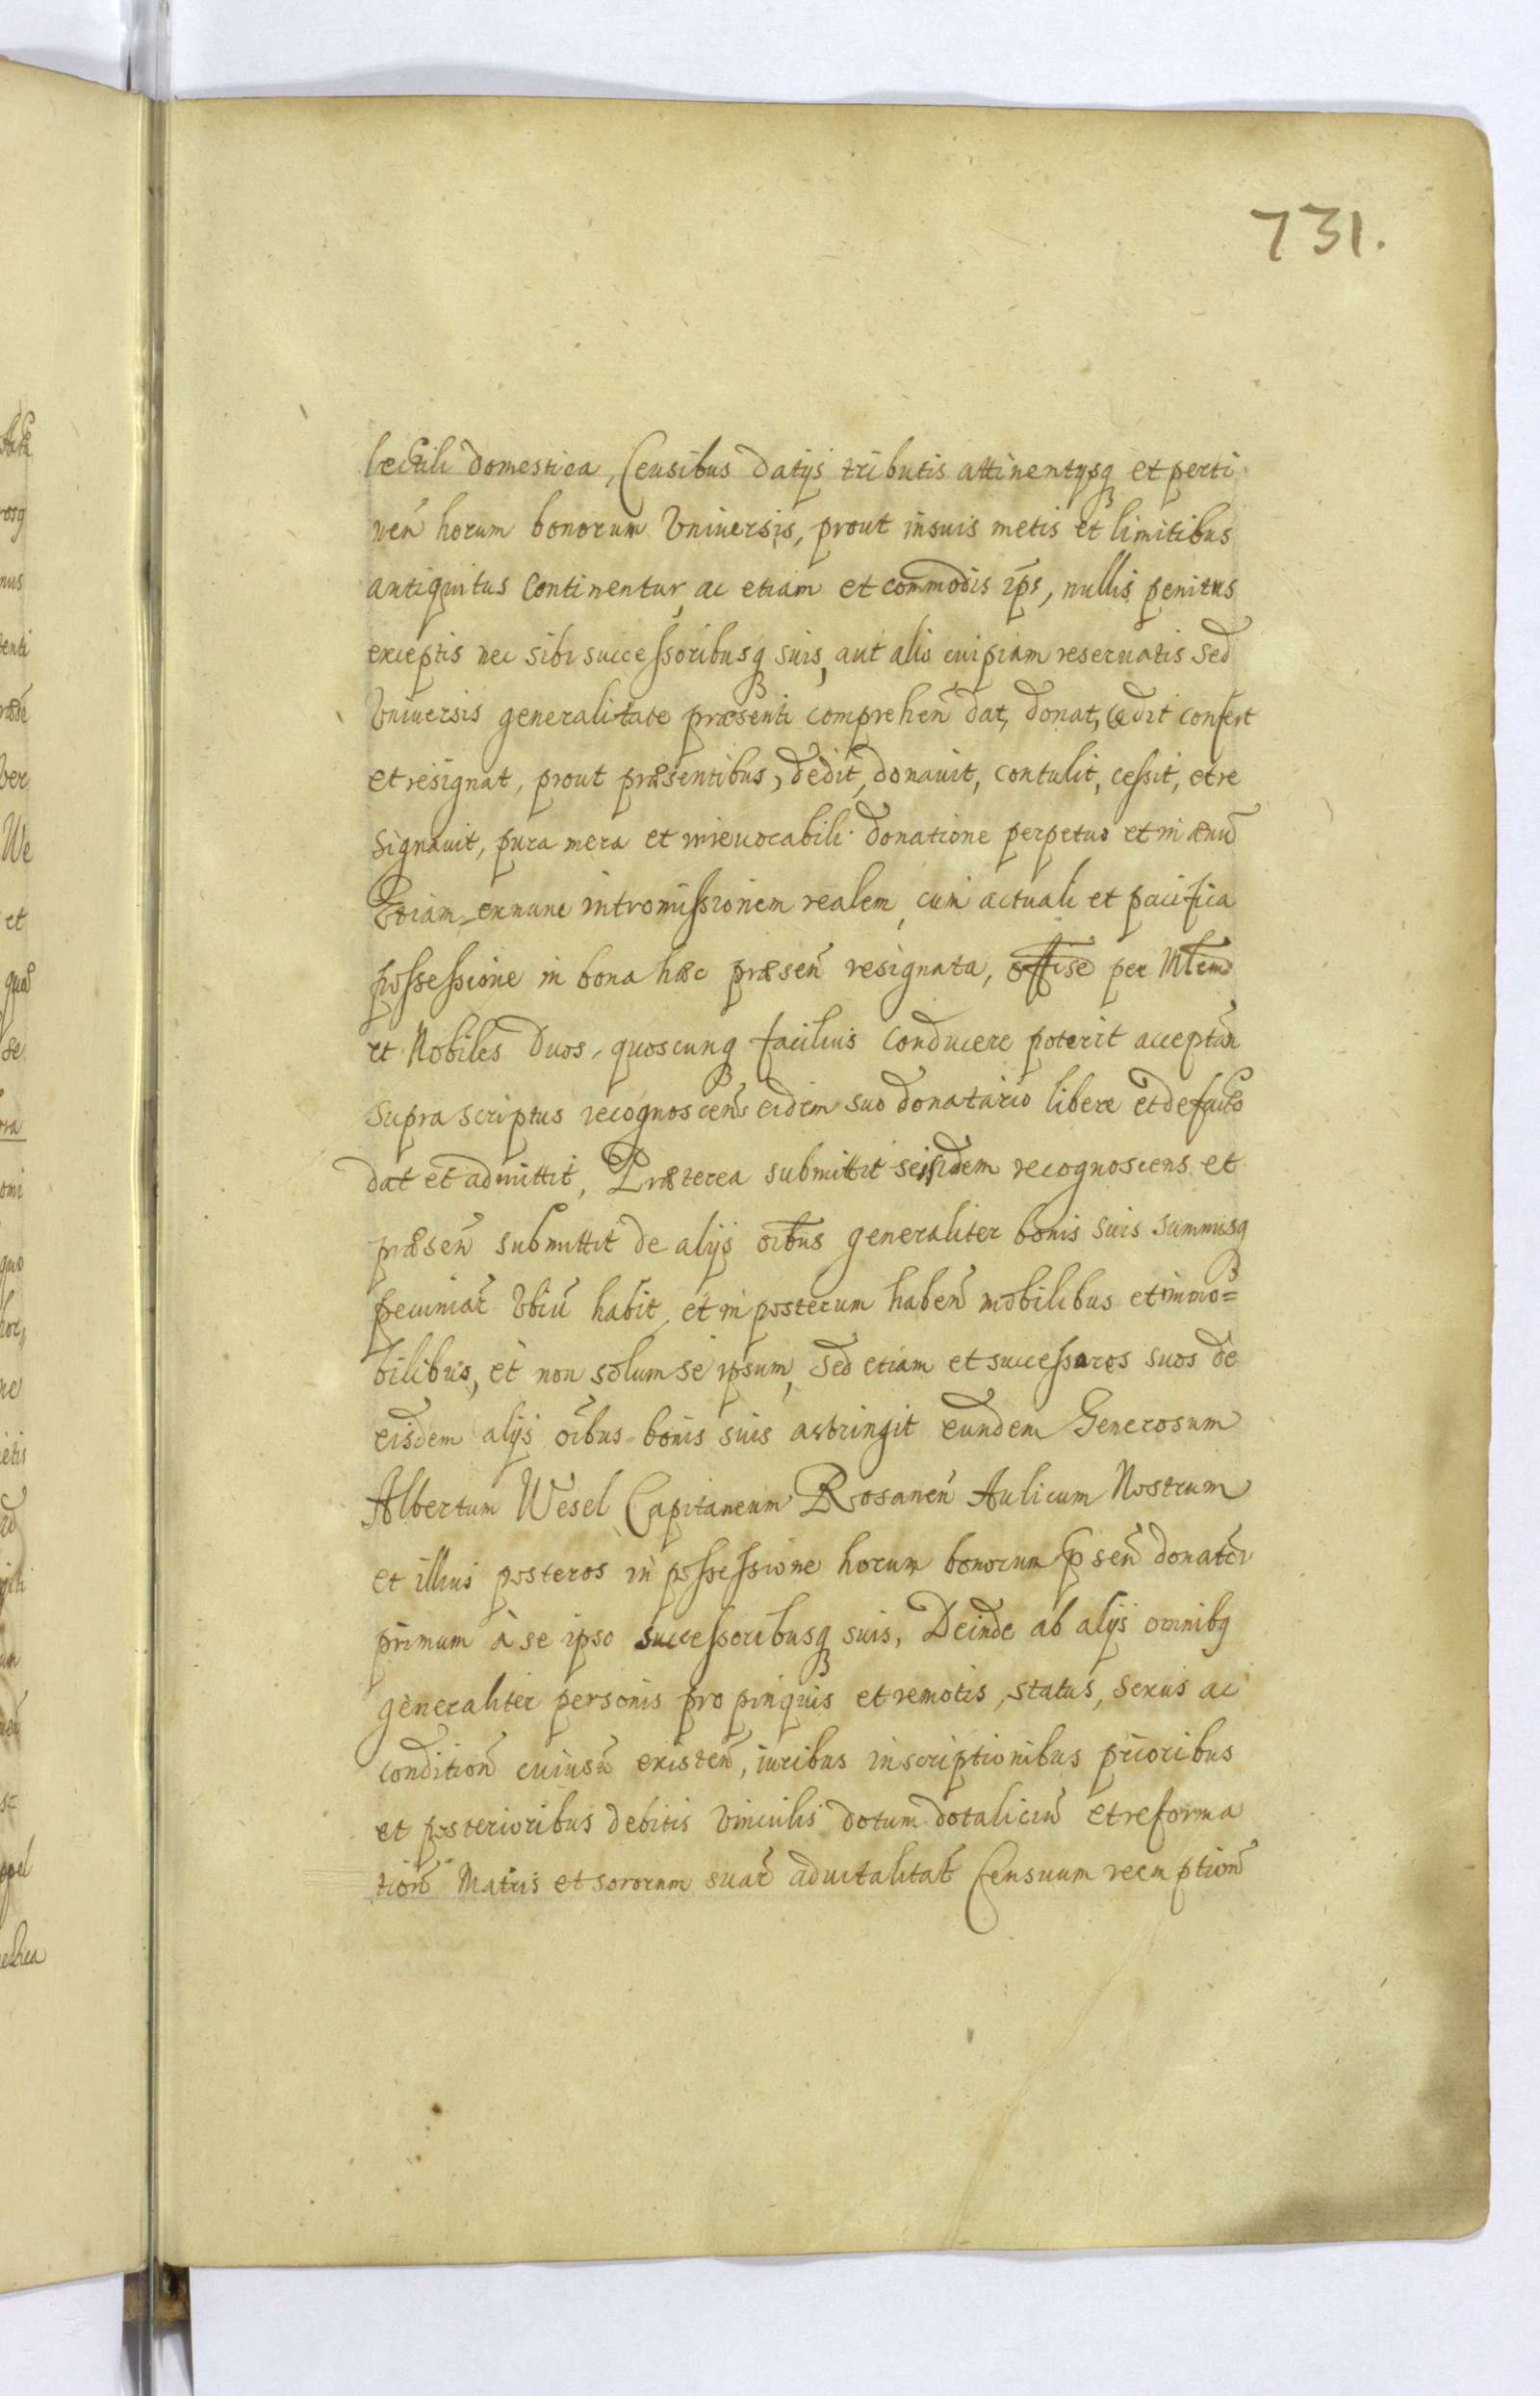 731.
lectili domestica, Censibus datijs tributis attinentijsq et perti
neñ horum bonorum Vniuersis, prout in suis metis et limitibus
antiquitus Continentur, ac etiam et commodis ips, nullis penitus
exceptis nec sibi successoribusq suis, aut alio cuipiam reseruatis sed
Vniuersis generalitate præsenti compreheñ dat, donat, cedit confert
et resignat, prout præsentibus, dedit, donauit, contulit, cessit, et re
signauit, pura mera et irreuocabili donatione perpetuo et in æuũ
Etiam exnunc intromissionem realem, cum actuali et pacifica
possessione in bona hæc præseñ resignata, per Mlem
et Nobiles Duos, quoscunq facilius conducere poterit
supra scriptus recognosceñs eidem suo donatario libere et de facto
dat et admittit, Præterea submittit se ibidem recognoscens et
præseñ submittit de alijs oĩbus generaliter bonis suis summisq
pecuniar̃ Vbiũ habit et in posterum habeñ mobilibus et immo=
bilibus, et non solum se ipsum, sed etiam et successores suos de
eisdem alijs oĩbus bonis suis astringit eundem Generosum
Albertum Wesel Capitaneum Rosaneñ Aulicum Nostrum
et illius posteros in possessione horum bonorum p̃señ donator̃
primum à se ipso successoribusq suis, Deinde ab alijs omnibq
generaliter personis propinquis et remotis, status, sexus ac
conditioñ cuiusũ existeñ, iuribus inscriptionibus prioribus
et posterioribus debitis vinculis dotum dotaliciũ et reforma
tioñ Matris et sororum suar̃ aduitalitat̃ Censuum reemptioñ